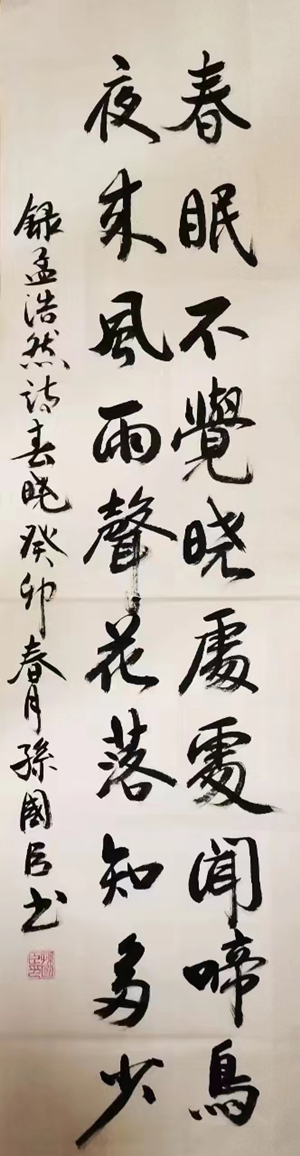 春眠不覺晓處處聞啼鳥
夜来風雨聲花落知多少
録孟浩然詩春晓癸卯春月孫國臣书